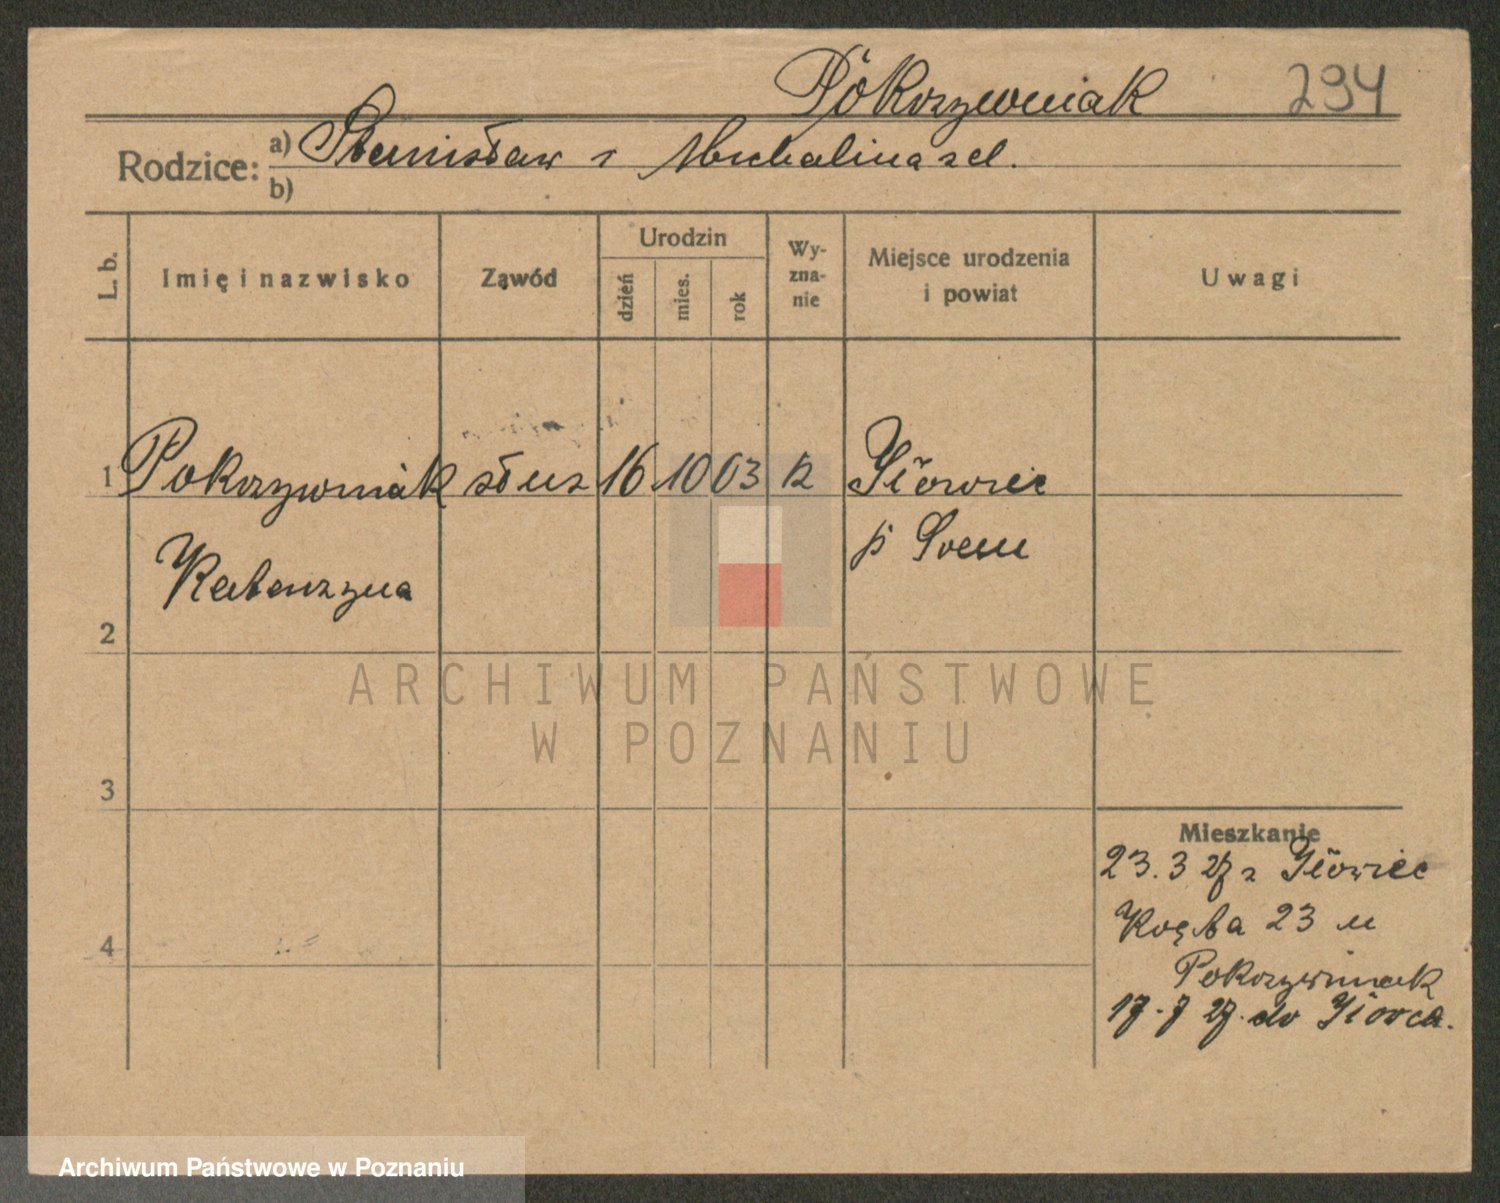 Pokrzywniak 294
Rodzice: a) Stanisław i Michalina zd.
b)
L. b. Imię i nazwisko Zawód Urodzin dzień mies. rok Wy-zna-nie Miejsce urodzenia i powiat Uwagi
1 Pokrzywniak służ 16 10 03 k Iłowiec
Katarzyna p. Srem
2
3
4
Mieszkanie
23.3 27 z Iłowiec
23 u
Pokrzywniak
17.7 27. do Iłowca.
ARCHIWUM PAŃSTWOWE
W POZNANIU
Archiwum Państwowe w Poznaniu